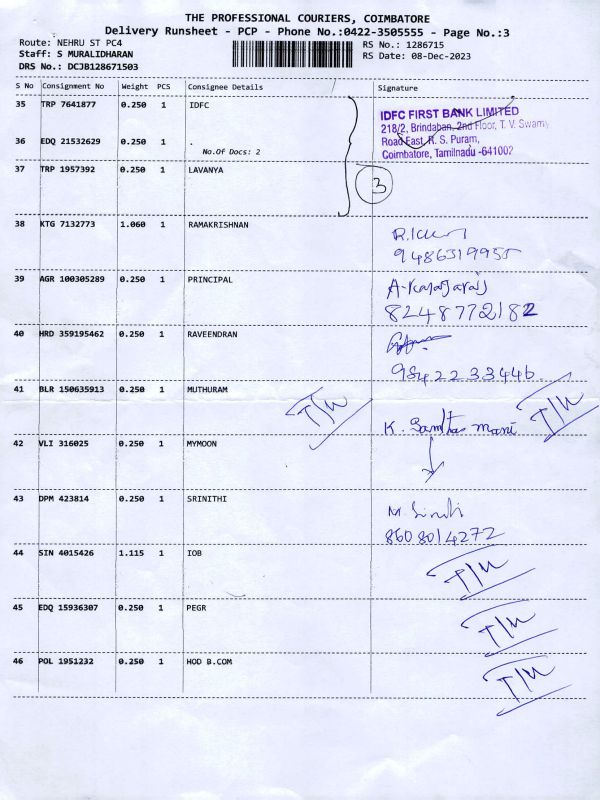 THE PROFESSIONAL COURIERS, COIMBATORE
Delivery Runsheet - PCP - Phone No.:0422-3505555 - Page No.:3
Route: NEHRU ST PC4
RS No.: 1286715
Staff: S MURALIDHARAN
RS Date: 08-Dec-2023
DRS No.: DCJB128671503
S No Consignment No Weight PCS Consignee Details Signature
35 TRP 7641877 0.250 1 IDFC
IDFC FIRST BANK LIMITED
218/2, Brindaban, 2nd Floor, T. V. Swamy
Road East, R. S. Puram,
Coimbatore, Tamilnadu -641002
36 EDQ 21532629 0.250 1 .
No.Of Docs: 2
37 TRP 1957392 0.250 1 LAVANYA
3
38 KTG 7132773 1.060 1 RAMAKRISHNAN
9486319955
39 AGR 100305289 0.250 1 PRINCIPAL
8248772182
40 HRD 359195462 0.250 1 RAVEENDRAN
9842233446
41 BLR 150635913 0.250 1 MUTHURAM
K. Santhos mani
42 VLI 316025 0.250 1 MYMOON
43 DPM 423814 0.250 1 SRINITHI
8608014272
44 SIN 4015426 1.115 1 IOB
45 EDQ 15936307 0.250 1 PEGR
46 POL 1951232 0.250 1 HOD B.COM